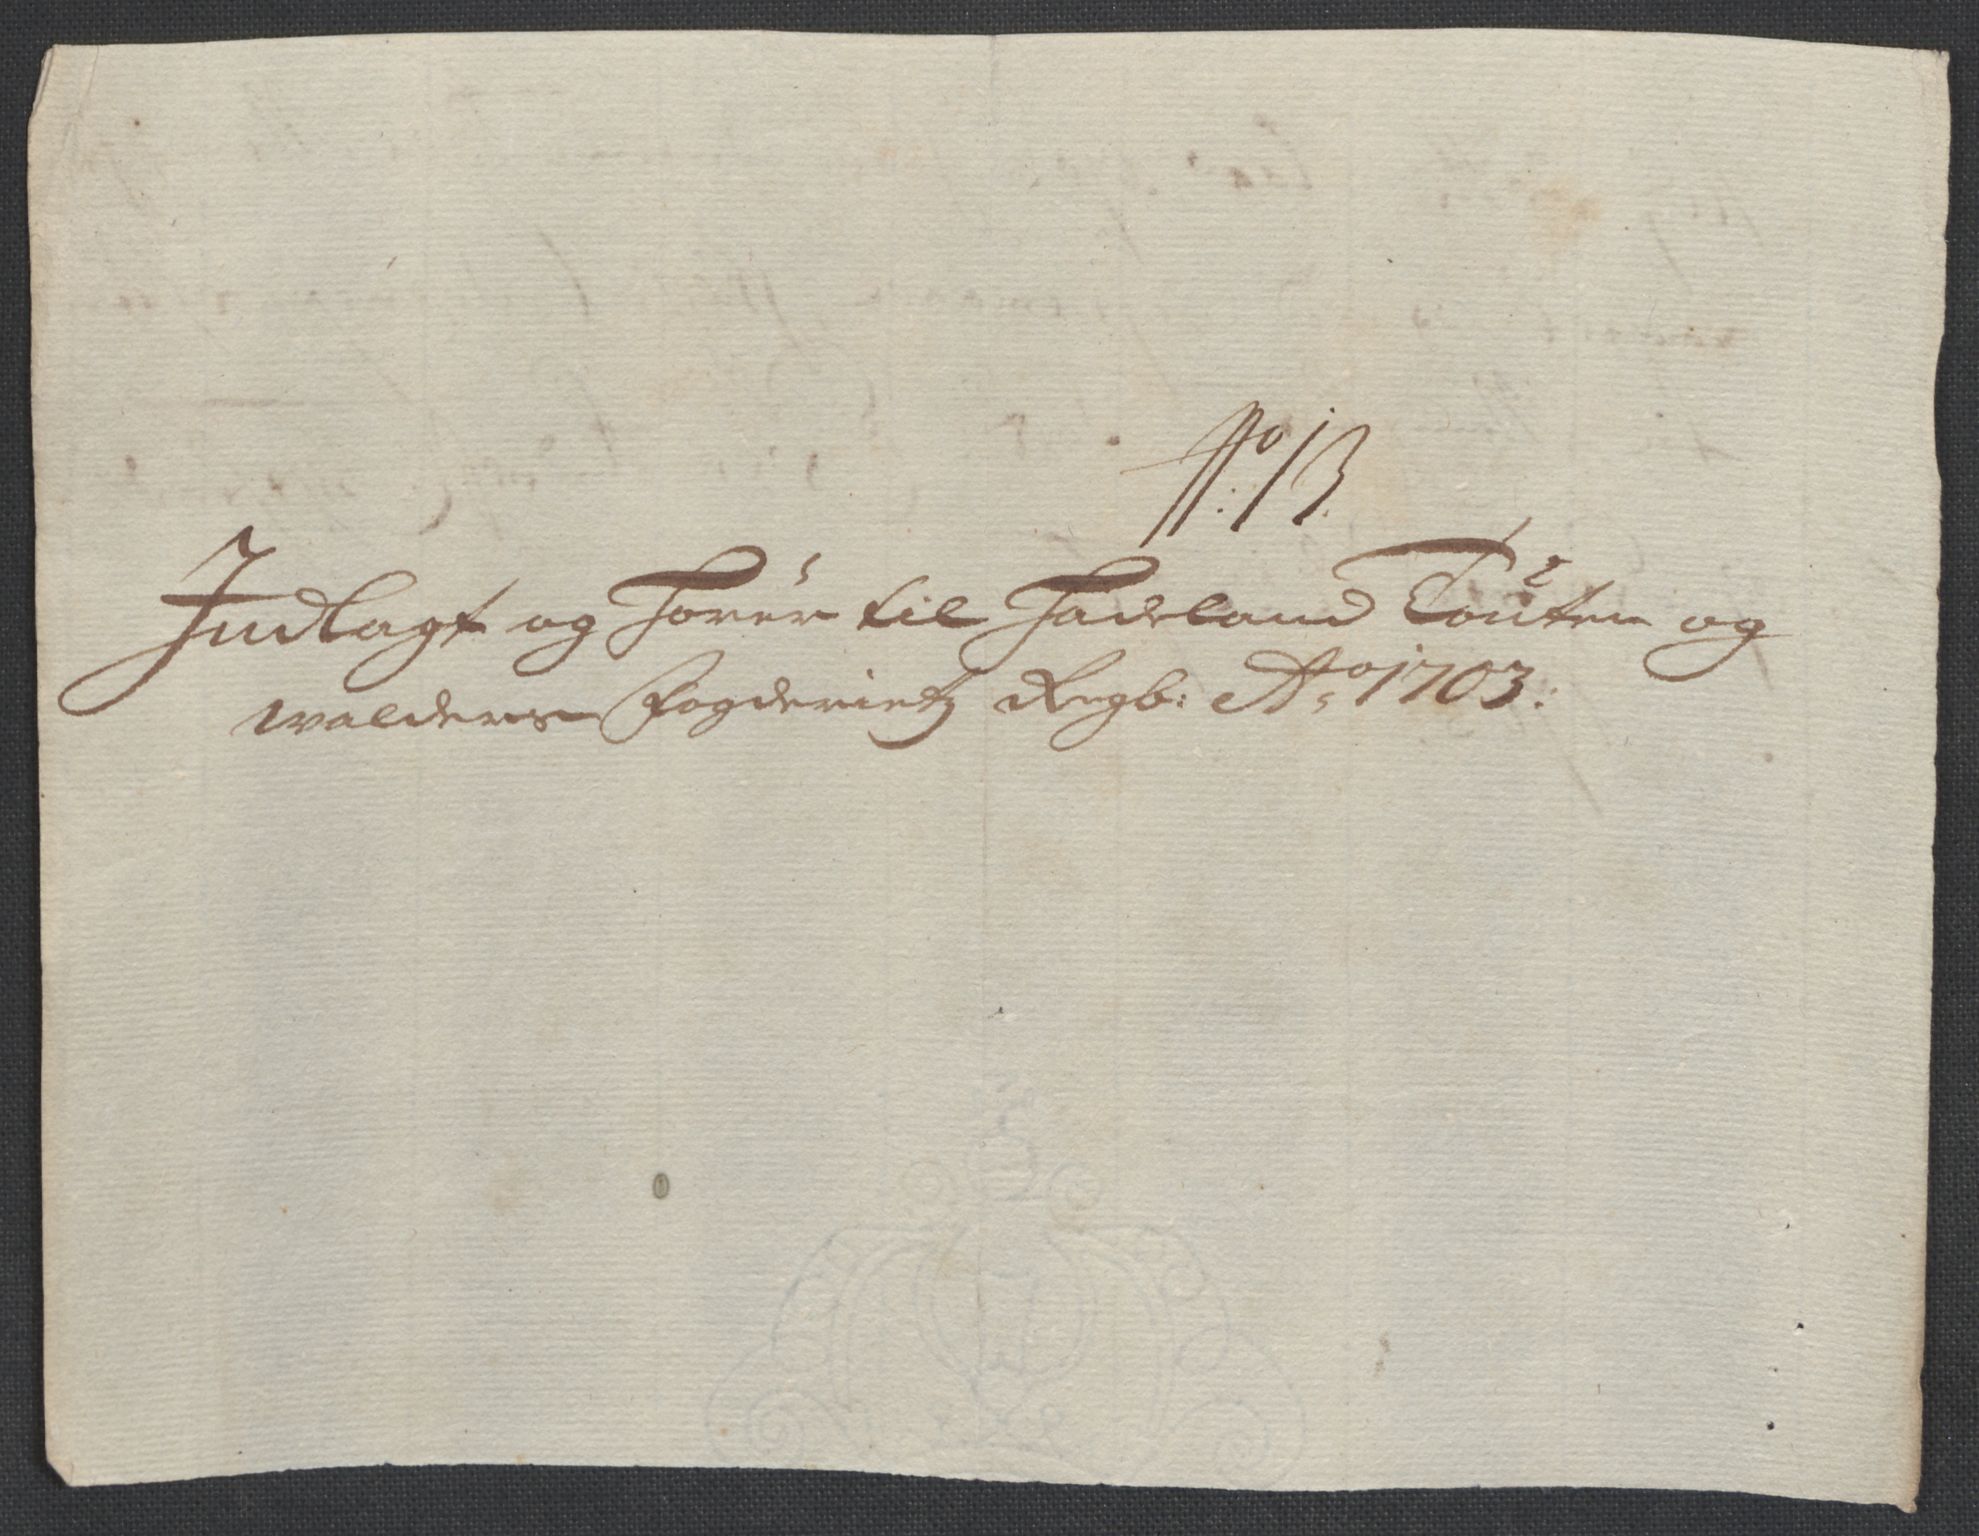 No: 13.
Indlagt og hører til Hadeland Touten og
walders Fogderietz Regb: Ao 1703: